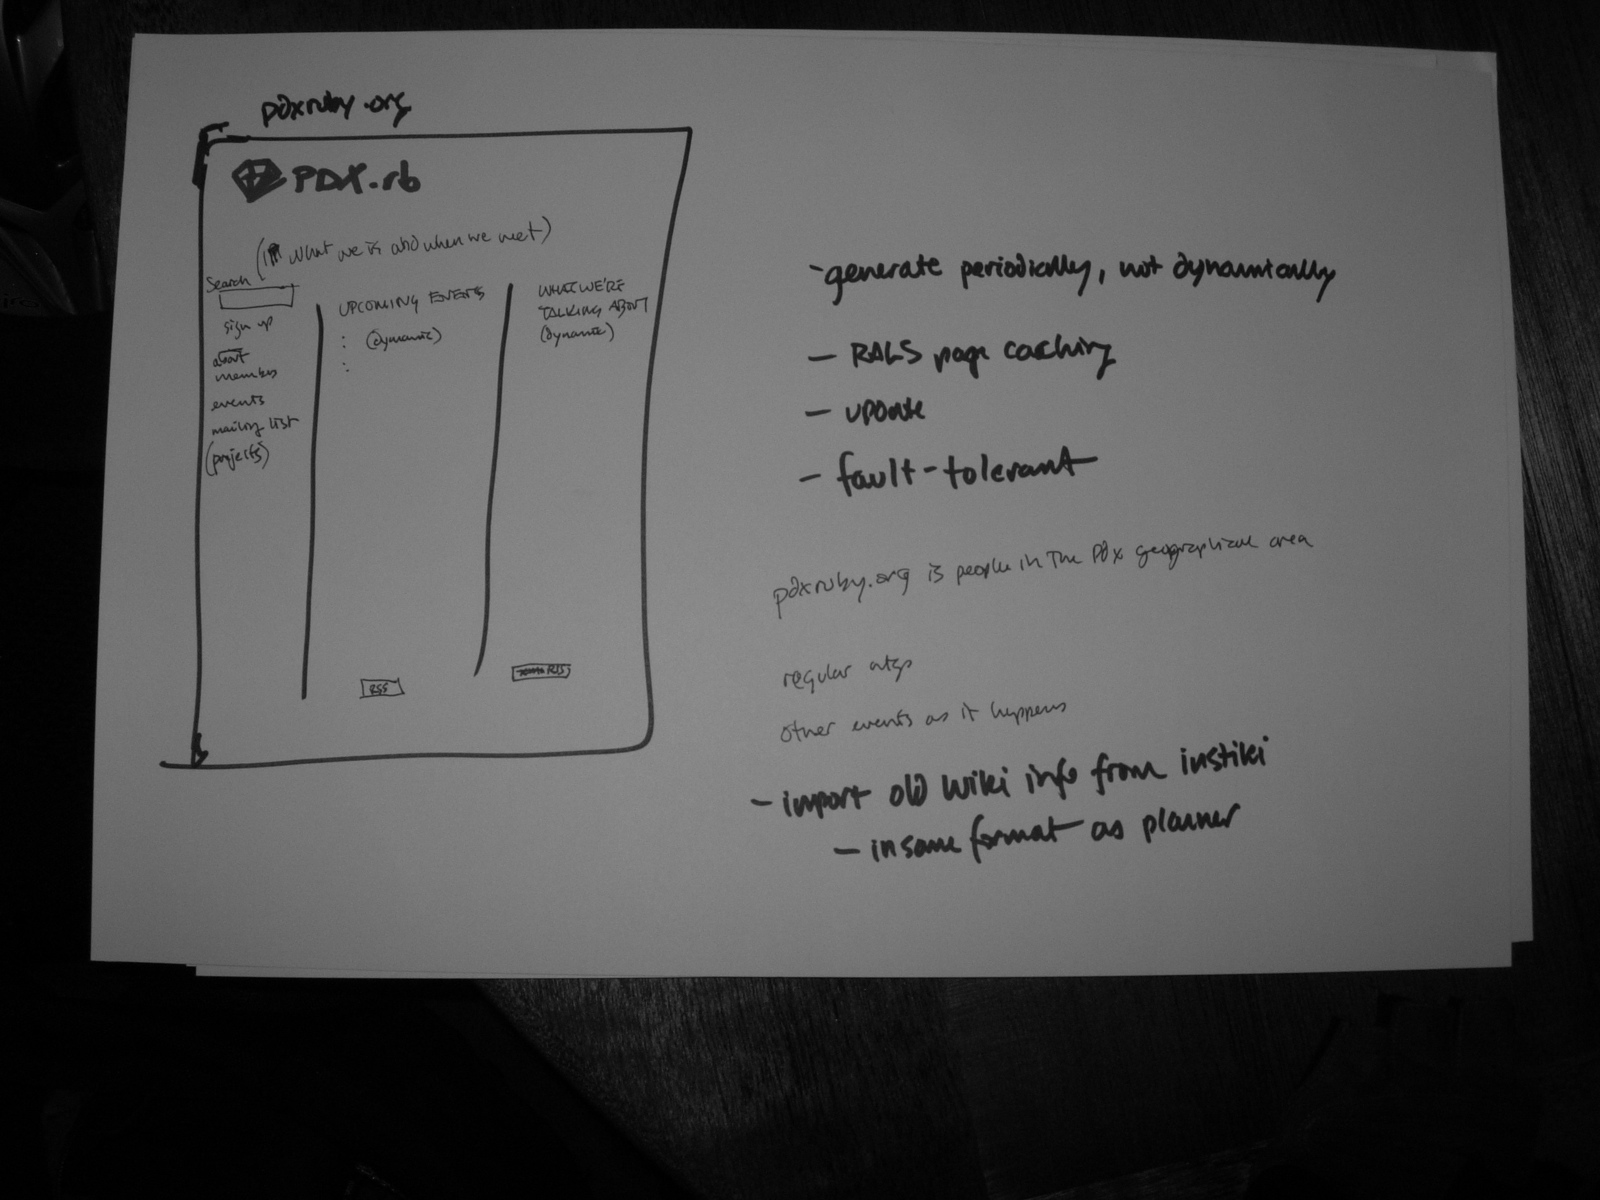 pdxruby.org
PDX.rb
( what we is and when we meet)
Search
sign up
about
members
events
mailing list
(projects)
UPCOMING EVENTS
: (dynamic)
:
RSS
WHAT WE'RE
TALKING ABOUT
(dynamic)
RSS
- generate periodically, not dynamically
- RAILS page caching
- update
- fault-tolerant
pdxruby.org is people in the PDX geographical area
regular mtgs
other events as it happens
- import old wiki info from instiki
- in same format as planner